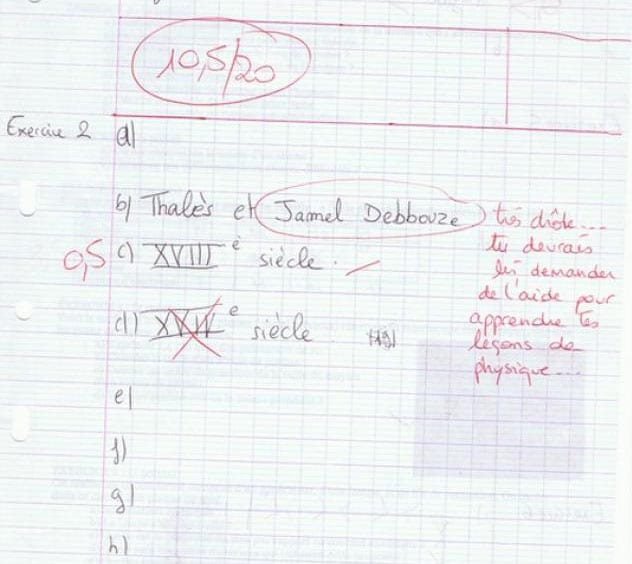 10,5/20
Exercice 2 a)
b) Thalès et Jamel Debbouze
très drôle...
tu devrais
lui demander
de l'aide pour
apprendre tes
leçons de
physique...
0,5 c) XVIIIè siècle.
d) siècle
e)
f)
g)
h)